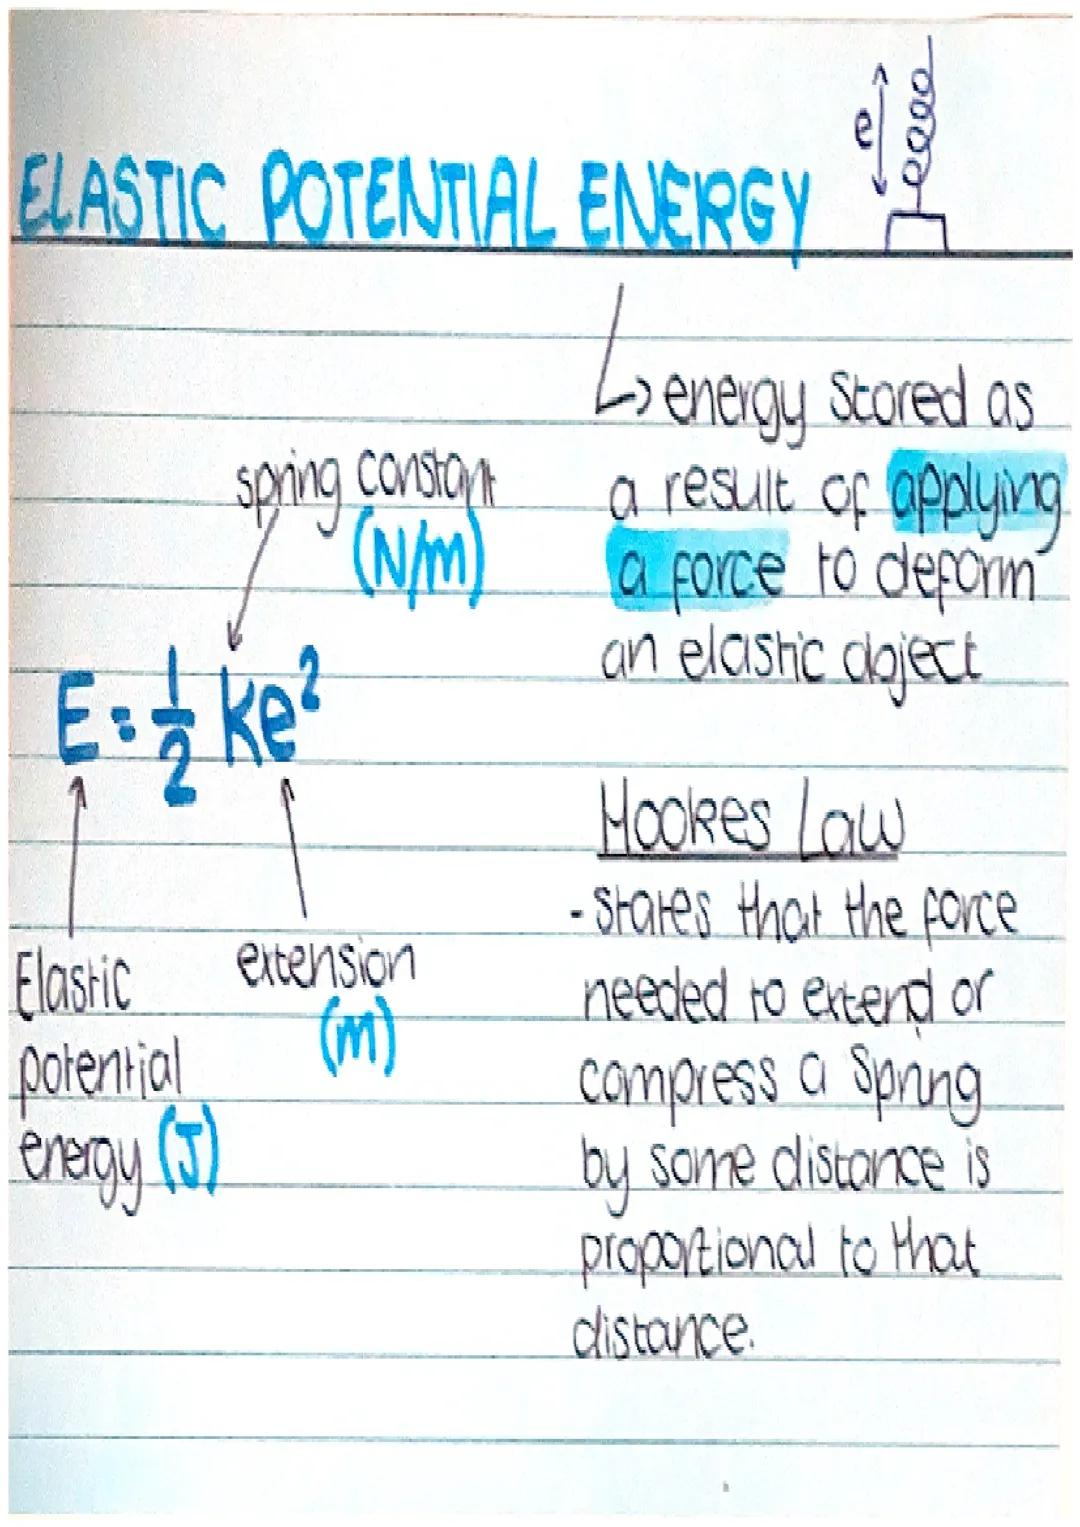 e
ELASTIC POTENTIAL ENERGY
↳ energy stored as
a result of applying
a force to deform
an elastic object
spring constant
(N/m)
E = ½ ke²
Elastic
potential
energy (J)
extension
(m)
Hookes Law
- States that the force
needed to extend or
compress a spring
by some distance is
proportional to that
distance.